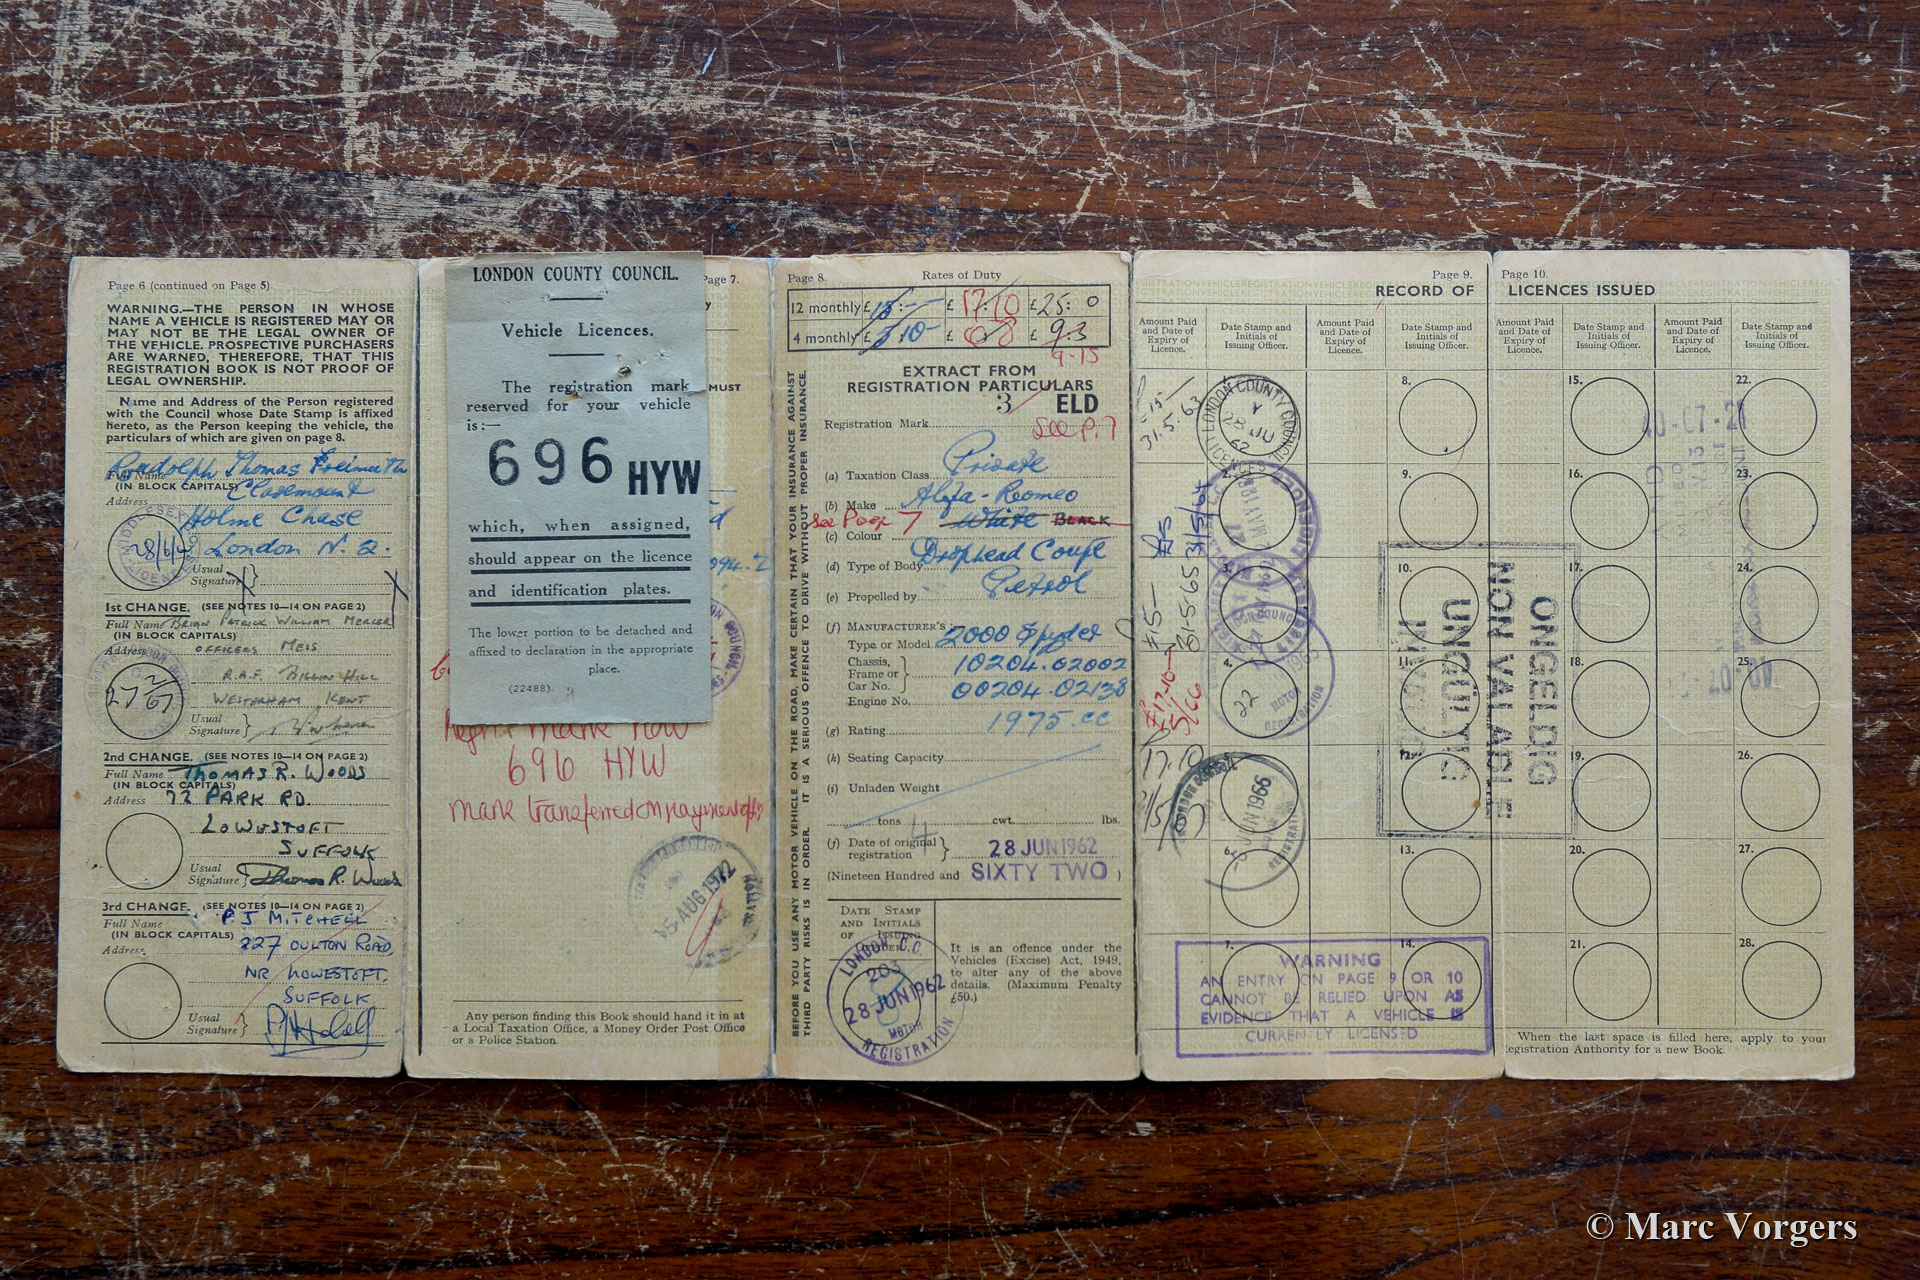 Page 6 (continued on Page 5)
WARNING.—THE PERSON IN WHOSE
NAME A VEHICLE IS REGISTERED MAY OR
MAY NOT BE THE LEGAL OWNER OF
THE VEHICLE. PROSPECTIVE PURCHASERS
ARE WARNED, THEREFORE, THAT THIS
REGISTRATION BOOK IS NOT PROOF OF
LEGAL OWNERSHIP.
Name and Address of the Person registered
with the Council whose Date Stamp is affixed
hereto, as the Person keeping the vehicle, the
particulars of which are given on page 8.
Rudolph Thomas Freimuth
Full Name
(IN BLOCK CAPITALS) Claremount
Address
Holme Chase
London N. 2.
Usual
Signature }
1ST CHANGE. (SEE NOTES 10—14 ON PAGE 2)
Full Name BRIAN PATRICK WILLIAM MERCER
(IN BLOCK CAPITALS)
Address OFFICERS MESS
R.A.F. BIGGIN HILL
WESTERHAM KENT
Usual
Signature }
2ND CHANGE. (SEE NOTES 10—14 ON PAGE 2)
Full Name THOMAS R. WOODS
(IN BLOCK CAPITALS)
Address 72 PARK RD.
LOWESTOFT
SUFFOLK
Usual
Signature } Thomas R. Woods
3RD CHANGE. (SEE NOTES 10—14 ON PAGE 2)
Full Name P J MITCHELL
(IN BLOCK CAPITALS)
Address 227 OULTON ROAD,
NR LOWESTOFT,
SUFFOLK
Usual
Signature }
Page 7.
LONDON COUNTY COUNCIL.
Vehicle Licences.
The registration mark
reserved for your vehicle
is:—
696 HYW
which, when assigned,
should appear on the licence
and identification plates.
The lower portion to be detached and
affixed to declaration in the appropriate
place.
(22488).
MUST
Regn mark now
696 HYW
mark transferred on payment of
15 AUG 1972
Any person finding this Book should hand it in at
a Local Taxation Office, a Money Order Post Office
or a Police Station.
Page 8. Rates of Duty
12 monthly £15:-- £17:10 £25: 0
4 monthly £ 5 10- £ 6 8 £ 9.3
9-15
BEFORE YOU USE ANY MOTOR VEHICLE ON THE ROAD, MAKE CERTAIN THAT YOUR INSURANCE AGAINST
THIRD PARTY RISKS IS IN ORDER. IT IS A SERIOUS OFFENCE TO DRIVE WITHOUT PROPER INSURANCE.
EXTRACT FROM
REGISTRATION PARTICULARS
3 ELD
Registration Mark
See P. 7
(a) Taxation Class Private
(b) Make Alfa-Romeo
See Page 7 White BLACK
(c) Colour
(d) Type of Body Drophead Coupe
(e) Propelled by Petrol
(f) MANUFACTURER'S
Type or Model 2000 Spyder
Chassis,
Frame or
Car No. } 10204.02002
Engine No. 00204.02138
(g) Rating 1975.cc
(h) Seating Capacity
(i) Unladen Weight
tons cwt. lbs.
(j) Date of original
registration } 28 JUN 1962
(Nineteen Hundred and SIXTY TWO )
DATE STAMP
AND INITIALS
OF ISSUING
LONDON C.C.
203
28 JUN 1962
MOTOR
REGISTRATION
It is an offence under the
Vehicles (Excise) Act, 1949,
to alter any of the above
details. (Maximum Penalty
£50.)
Page 9.
RECORD OF
Amount Paid
and Date of
Expiry of
Licence.
Date Stamp and
Initials of
Issuing Officer.
Amount Paid
and Date of
Expiry of
Licence.
Date Stamp and
Initials of
Issuing Officer.
£15-
31.5.63
LONDON COUNTY COUNCIL
28 JU
62
LICENCES
2.
3.
£15-
31-5-65
4.
22
£17-10-
31/5/66
17.10
JUN 1966
6.
7.
8.
9.
10.
11.
12.
13.
14.
WARNING
AN ENTRY ON PAGE 9 OR 10
CANNOT BE RELIED UPON AS
EVIDENCE THAT A VEHICLE IS
CURRENTLY LICENSED
Page 10.
LICENCES ISSUED
Amount Paid
and Date of
Expiry of
Licence.
Date Stamp and
Initials of
Issuing Officer.
Amount Paid
and Date of
Expiry of
Licence.
Date Stamp and
Initials of
Issuing Officer.
UNGÜLTIG
NON VALABLE
ONGELDIG
15.
16.
18.
19.
20.
21.
22.
23.
24.
25.
26.
27.
28.
When the last space is filled here, apply to your
Registration Authority for a new Book.
© Marc Vorgers